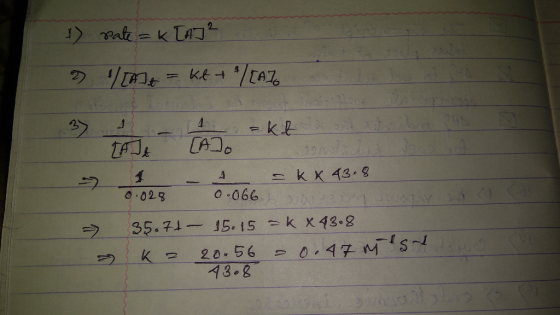 1) rate = K [A]²
2) 1/[A]t = Kt + 1/[A]o
3) 1/[A]t - 1/[A]o = Kt
⇒ 1/0.028 - 1/0.066 = K × 43.8
⇒ 35.71 - 15.15 = K × 43.8
⇒ K = 20.56/43.8 = 0.47 M⁻¹ S⁻¹